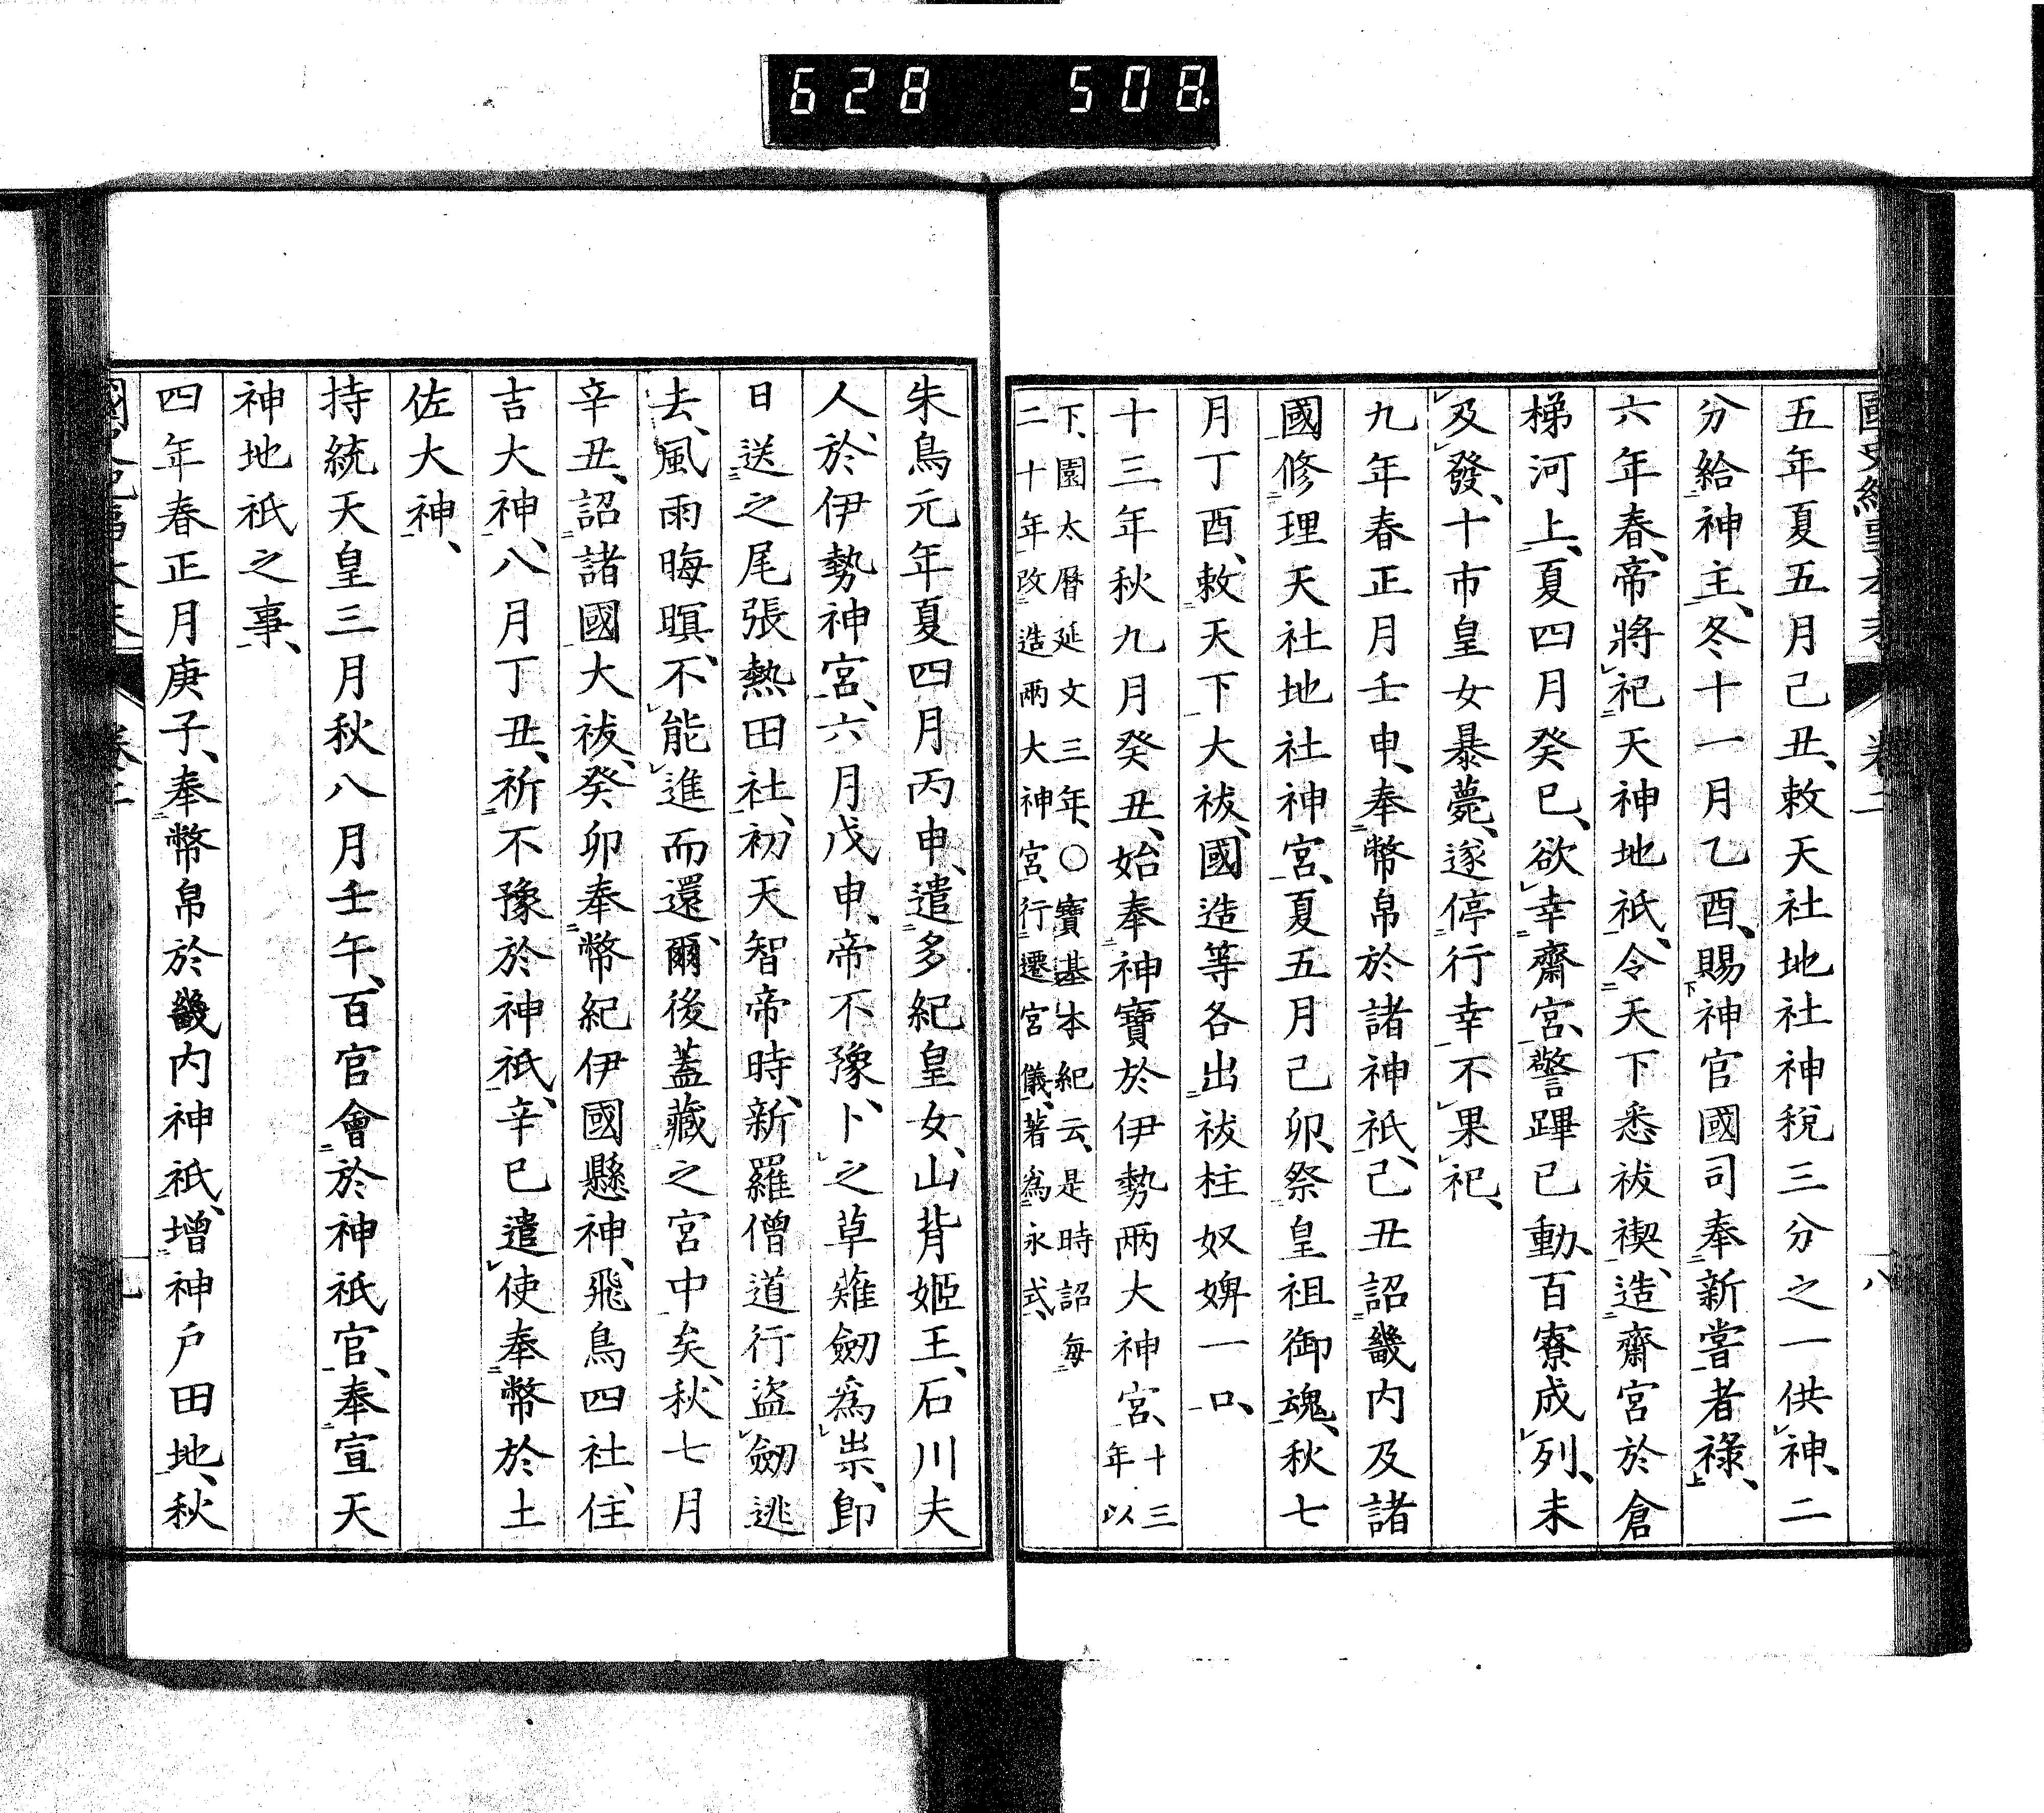 628 508.
國史紀事本末 卷二 八
五年夏五月己丑、敕天社地社神稅三分之一供神、二
分給神主、冬十一月乙酉、賜神官國司奉新嘗者祿、
六年春、帝將祀天神地祇、令天下悉祓禊、造齋宮於倉
梯河上、夏四月癸巳、欲幸齋宮、警蹕已動、百寮成列、未
及發、十市皇女暴薨、遂停行幸不果祀、
九年春正月壬申、奉幣帛於諸神祇、己丑詔畿内及諸
國修理天社地社神宮、夏五月己卯、祭皇祖御魂、秋七
月丁酉、敕天下大祓、國造等各出祓柱奴婢一口、
十三年秋九月癸丑、始奉神寶於伊勢兩大神宮、十三年以
下、園太曆延文三年、○寶基本紀云、是時詔每
二十年改造兩大神宮、行遷宮儀、著爲永式、
朱鳥元年夏四月丙申、遣多紀皇女、山背姬王、石川夫
人、於伊勢神宮、六月戊申、帝不豫、卜之草薙劒爲祟、即
日送之尾張熱田社、初天智帝時、新羅僧道行盜劒逃
去、風雨晦暝、不能進而還、爾後蓋藏之宮中矣、秋七月
辛丑、詔諸國大祓、癸卯奉幣紀伊國懸神、飛鳥四社、住
吉大神、八月丁丑、祈不豫於神祇、辛巳遣使奉幣於土
佐大神、
持統天皇三月秋八月壬午、百官會於神祇官、奉宣天
神地祇之事、
四年春正月庚子、奉幣帛於畿内神祇、增神戶田地、秋